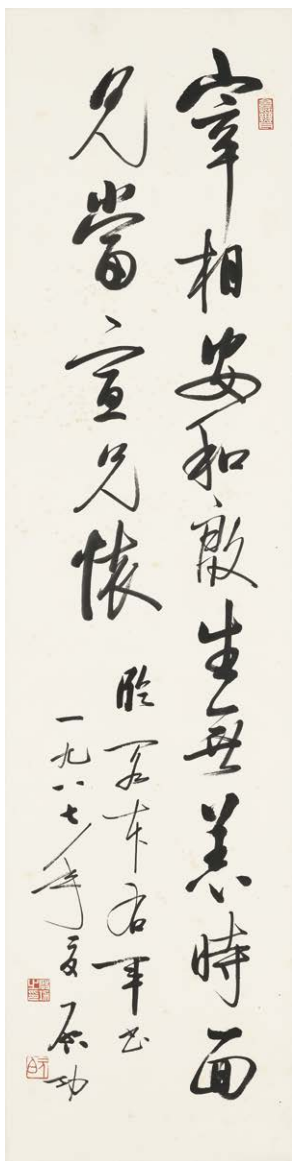 宰相安和殷生無恙時面
兄當宣兄懷
臨閣本右軍書
一九八七年夏 启功
元白